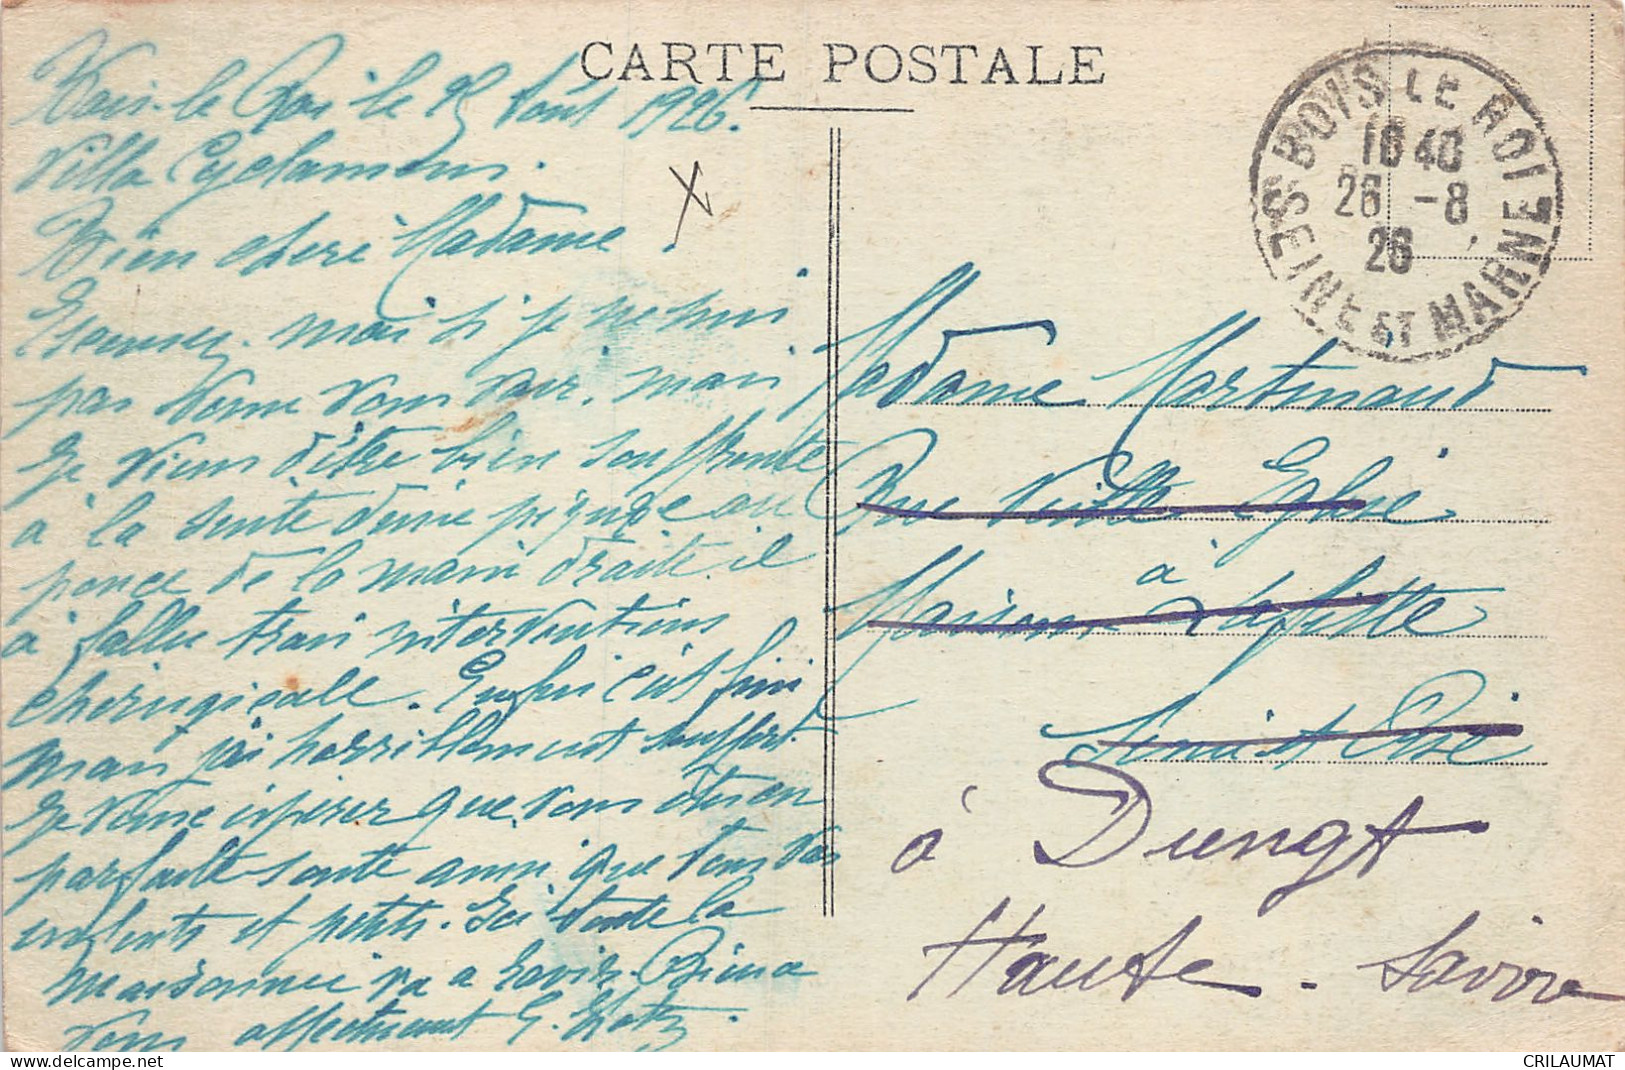 CARTE POSTALE
Bois-le Roi le 25 Août 1926.
Villa Cyclamens.
Bien chère Madame.
Excusez-moi si je ne suis
pas venue vous voir, mais
je viens d'être bien souffrante
à la suite d'une piqure au
pouce de la main droite. il
a fallu trois interventions
chirugicale. Enfin c'est fini
mais j'ai horriblement souffert.
Je veux espérer que vous êtes en
parfaite santé ainsi que tous vos
enfants et petits. Ici toute la
maisonnée va a ravir. Bien a
vous affectueusement G.
BOIS LE ROI
16 40
26 -8
26
SEINE ET MARNE
Madame Martinaud
Rue Vieille Eglise
à
Maisons Lafitte
Seine et Oise
à Duingt
Haute-Savoie
delcampe.net
CRILAUMAT